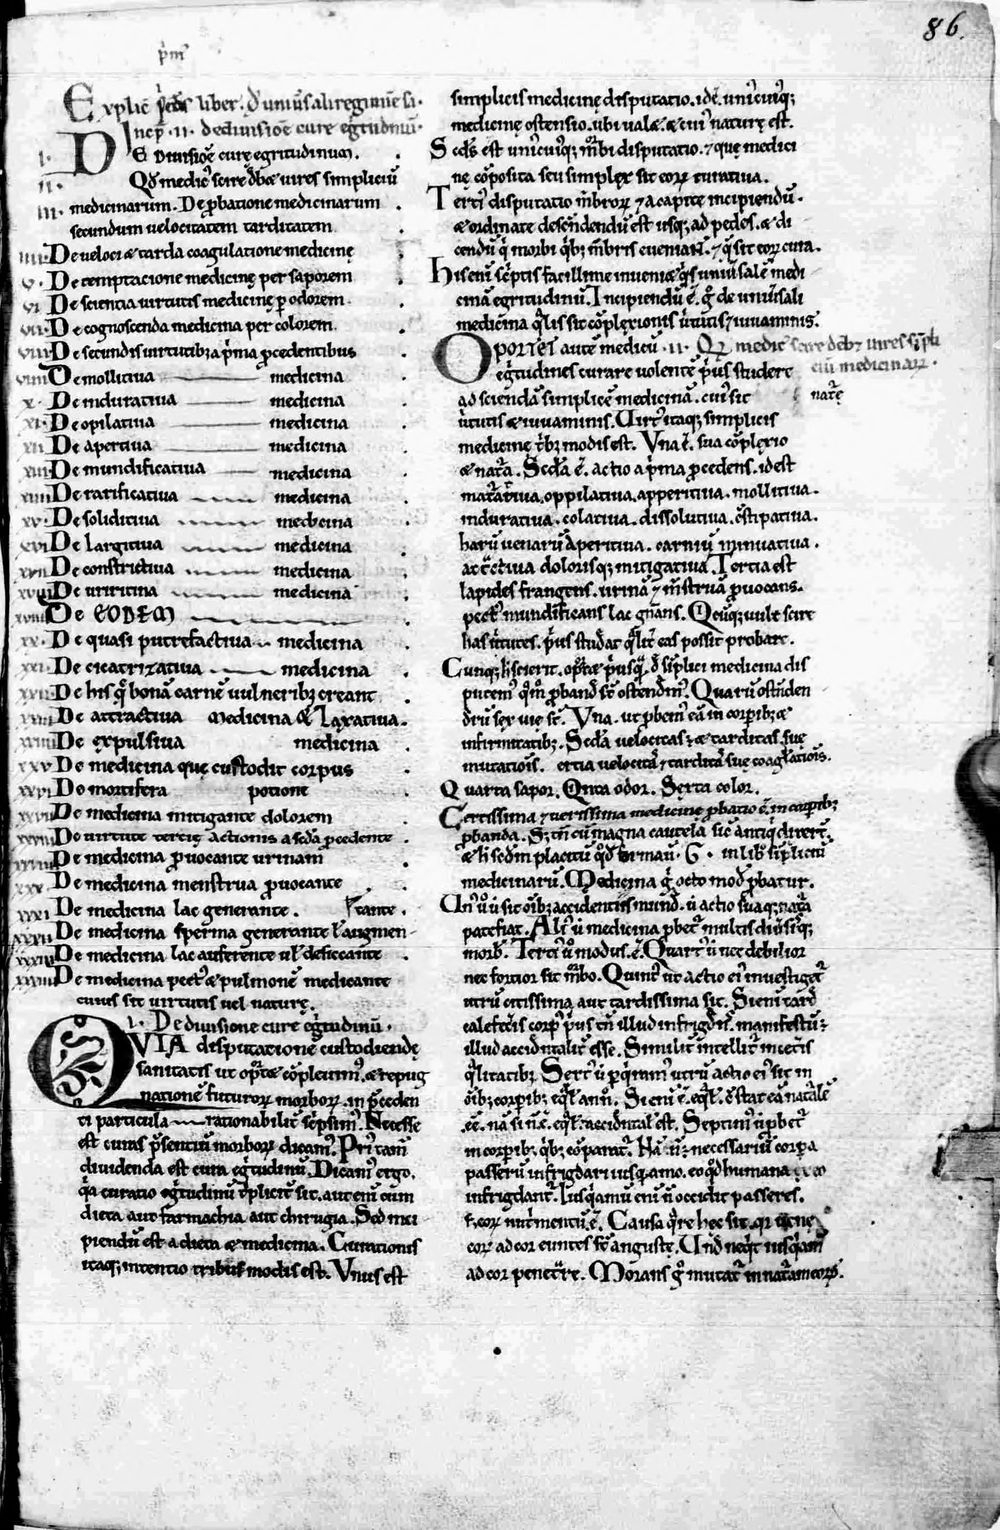 86.
Explic̃ liber. d̓ uniũsali regim̃e si.
Incip̃ .ii. de diuisiõe cure eg̃tudinũ.
i. DE Diuisiõe curę egritudinum.
ii. Qđ medic᷒ scire đb& uires simpliciũ
iii. medicinarum. De p̱batione medicinarum
secundum velocitatem tarditatem
iiii. De veloci & tarda coagulatione medicinę
v. De temptacione medicinę per saporem
vi. De scientia uirtutis medicinę p̱ odorem.
vii. De cognoscenda medicina per colorem.
viii. De secundis uirtutibꝫ a p̃ma p̱cedentibus
viiii. De mollitiua medicina
x. De indurativa medicina
xi. De opilatiua medicina
xii. De apertiua medicina
xiii. De mundificatiua medicina
xiiii. De rarificatiua medicina
xv. De soliditiua medicina
xvi. De largitiua medicina
xvii. De constrictiua medicina
xviii. De uritina medicina
xviiii. De EODEM
xx. De quasi putrefactiua medicina
xxi. De cicatrizatiua medicina
xxii. De his q̃ bonã carnẽ uulneribꝫ creant
xxiii. De attractiua medicina & laxatiua.
xxiiii. De expulsiua medicina
xxv. De medicina quę custodit corpus
xxvi. De mortifera potione
xxvii. De medicina mitigante dolorem
xxviii. De uirtute tercię actionis a scđa p̱cedente
xxviiii. De medicina p̱uocante urinam
xxx. De medicina menstrua p̱uocante
xxxi. De medicina lac generante. tante.
xxxii. De medicina sperma generante ł augmen-
xxxiii. De medicina lac auferente uł desiccante
xxxiiii. De medicina pect᷒ & pulmonẽ medicante
cuius sit uirtutis uel naturę.
i. De diuisione cure eg̃tudinũ.
QVIA disputationẽ custodiendę
sanitatis ut op̱t& cõpleuim᷒, & repug
nationẽ futuroꝝ morboꝝ in p̃ceden
ti particula rationabilit̃ sc̃psim᷒. Necesse
est curas p̃sentiũ morboꝝ dicam᷒. Pri᷒ tam̃
diuidenda est cura eg̃tudinũ. Dicam᷒ ergo.
q̃a curatio eg̃tudinũ t̃plicit̃ sit. aut enĩ cum
dieta aut farmachia aut chirugia. Sed inci
piendũ est a dieta & medicina. Curationis
itaqꝫ intentio tribus modis est. Vnus est
simplicis medicinę disputatio. idẽ. uni᷒cuiqꝫ
medicinę ostensio. ubi ualæ & cui᷒ naturę est.
Scđs est uni᷒cuiqꝫ m̃bi disputatio. ⁊ quę medici
nę cõposita seu simplex sit eoꝝ curatiua.
Terti᷒ disputatio m̃broꝝ ⁊ a capite incipiendũ.
& ordinate descendendũ est usqꝫ ad pedes. & di
cendũ q̃ morbi q̃bꝫ m̃bris eueniant. ⁊ q̃ sit eoꝝ cura.
His enĩ sc̃ptis facillime inueni& q̃s uniũsalẽ medi
cinã egritudinũ. Incipiendũ ẽ. g̊ de uniũsali
medicina q̃lis sit cõplexionis ũtutis ⁊ iuuaminis.
OPORTET autẽ medicũ .ii. Qđ medic᷒ scire deb& uires sĩpli
eg̃tudines curare uolentẽ p̃us studere ciũ medicinaꝝ.
ad sciendã simplicẽ medicinã. cui᷒ sit natũę
ũtutis & iuuaminis. Uirt᷒ itaqꝫ simplicis
medicinę t̃bꝫ modis est. Vna ẽ. sua cõplexio
& nat̃a. Scđa ẽ. actio a p̃ma p̱cedens. id est
mat̃atiua. oppilatiua. apperitiua. mollitiua.
indurativa. colatiua. dissolutiua. c̃stipatiua.
harũ uenarũ aperitiua. carniũ minuatiua.
att̃ctiua dolorisqꝫ mitigatiua. Tertia est
lapides frangens. urinã ⁊ m̃strua p̱uocans.
pect᷒ mundificans lac gñans. Qicũqꝫ uult scire
has ũtutes. p̃us studeat q̃lit̃ eas possit probare.
Cunqꝫ h̃ scierit. op̱t& p̃usq̃ d̓ sĩplici medicina dis
putem᷒ q̃m̊ p̱banđ sẽ ostendim᷒. Quarũ ostẽden
drũ sex uię st̃. Vna. ut p̱bem᷒ eã in corp̱ibꝫ &
infirmitatibꝫ. Scđa uelocitas & tarditas suę
mutatiõis. ertia uelocitã ⁊ tarditã suę coag̃latiõis.
Quarta sapor. Qnta odor. Sexta color.
Certissima ⁊ uerissima medicinę p̱batio ẽ. in corp̱ibꝫ
p̱banda. Sꝫ tñ cũ magna cautela sic antiq̃ dixer̃t.
& h̃ scđm placitũ qđ firmauit .G. in lib᷒ simpliciũ
medicinarũ. Medicina g̊ octo mod᷒ p̱batur.
Un᷒ ũ ut sit oĩbꝫ accidentiis mund᷒. ũ actio suaqꝫ nat̃a
patefiat. Ali᷒ ũ medicina p̱bet̃ multis diũsisqꝫ
morb᷒. Terti᷒ ũ modus. ẽ. Quart᷒ ũ uice debilior
nec fortior sit m̃bo. Quint᷒ ut actio ei᷒ inuestiget̃
utrũ citissima aut tardissima sit. Si enĩ tard᷒
calefec̃is corp᷒ p̃us tñ illud infrigđis. manifestũꝫ
illud accidentalit̃ esse. Similit̃ intellit̃ in cet̃is
q̃litatibꝫ. Sext᷒ ũ p̱q̃ram᷒ utrũ actio ei᷒ sit in
oĩbꝫ corp̱ibꝫ eq̃l᷒ an ñ. Si enĩ ẽ. eq̃l᷒. c̃stat eã nat̃alẽ
.ẽe. nã si ñ ẽ. eq̃l᷒. accidental᷒ est. Septim᷒ ũ p̱bet̃
in corp̱ibꝫ q̃bꝫ cõparat̃. Nã ñꝫ necessariũ corp̱a
passerũ infrigdari iusq̃amo. eo qđ humana eo
infrigdant̃. Iusq̃amũ enĩ ñ occidit passeres.
s; eoꝝ nut̃mentũ ẽ. Causa q̃re hec sit. q̃ uenę
eoꝝ ad cor euntes st̃ angustę. Unđ neq̃t iusq̃am᷒
ad cor penet̃re. Morans g̊ mutat̃ in nat̃am corp᷒.